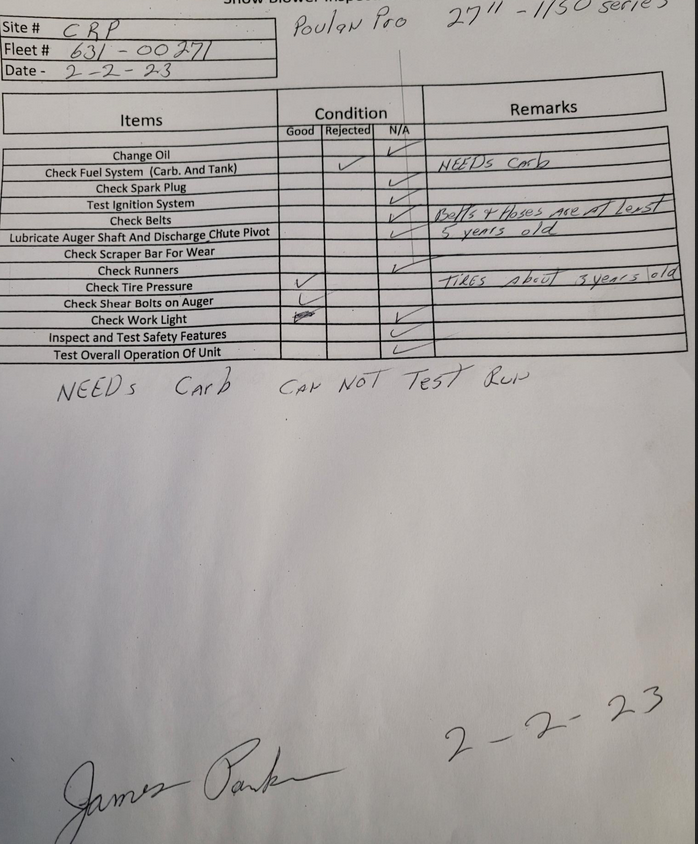 Snow Blower Inspec
Poulan Pro 27" - 1150 series
Site # CRP
Fleet # 631-00271
Date - 2-2-23
Items Condition Remarks
Good Rejected N/A
Change Oil ✓
Check Fuel System (Carb. And Tank) ✓ NEEDs Carb
Check Spark Plug ✓
Test Ignition System ✓
Check Belts ✓ Belts & Hoses Are At Least
Lubricate Auger Shaft And Discharge Chute Pivot ✓ 5 years old
Check Scraper Bar For Wear
Check Runners ✓
Check Tire Pressure ✓ TIRES About 3 years old
Check Shear Bolts on Auger ✓
Check Work Light ✓
Inspect and Test Safety Features ✓
Test Overall Operation Of Unit ✓
NEEDs Carb CAN NOT TEST RUN
James
2-2-23